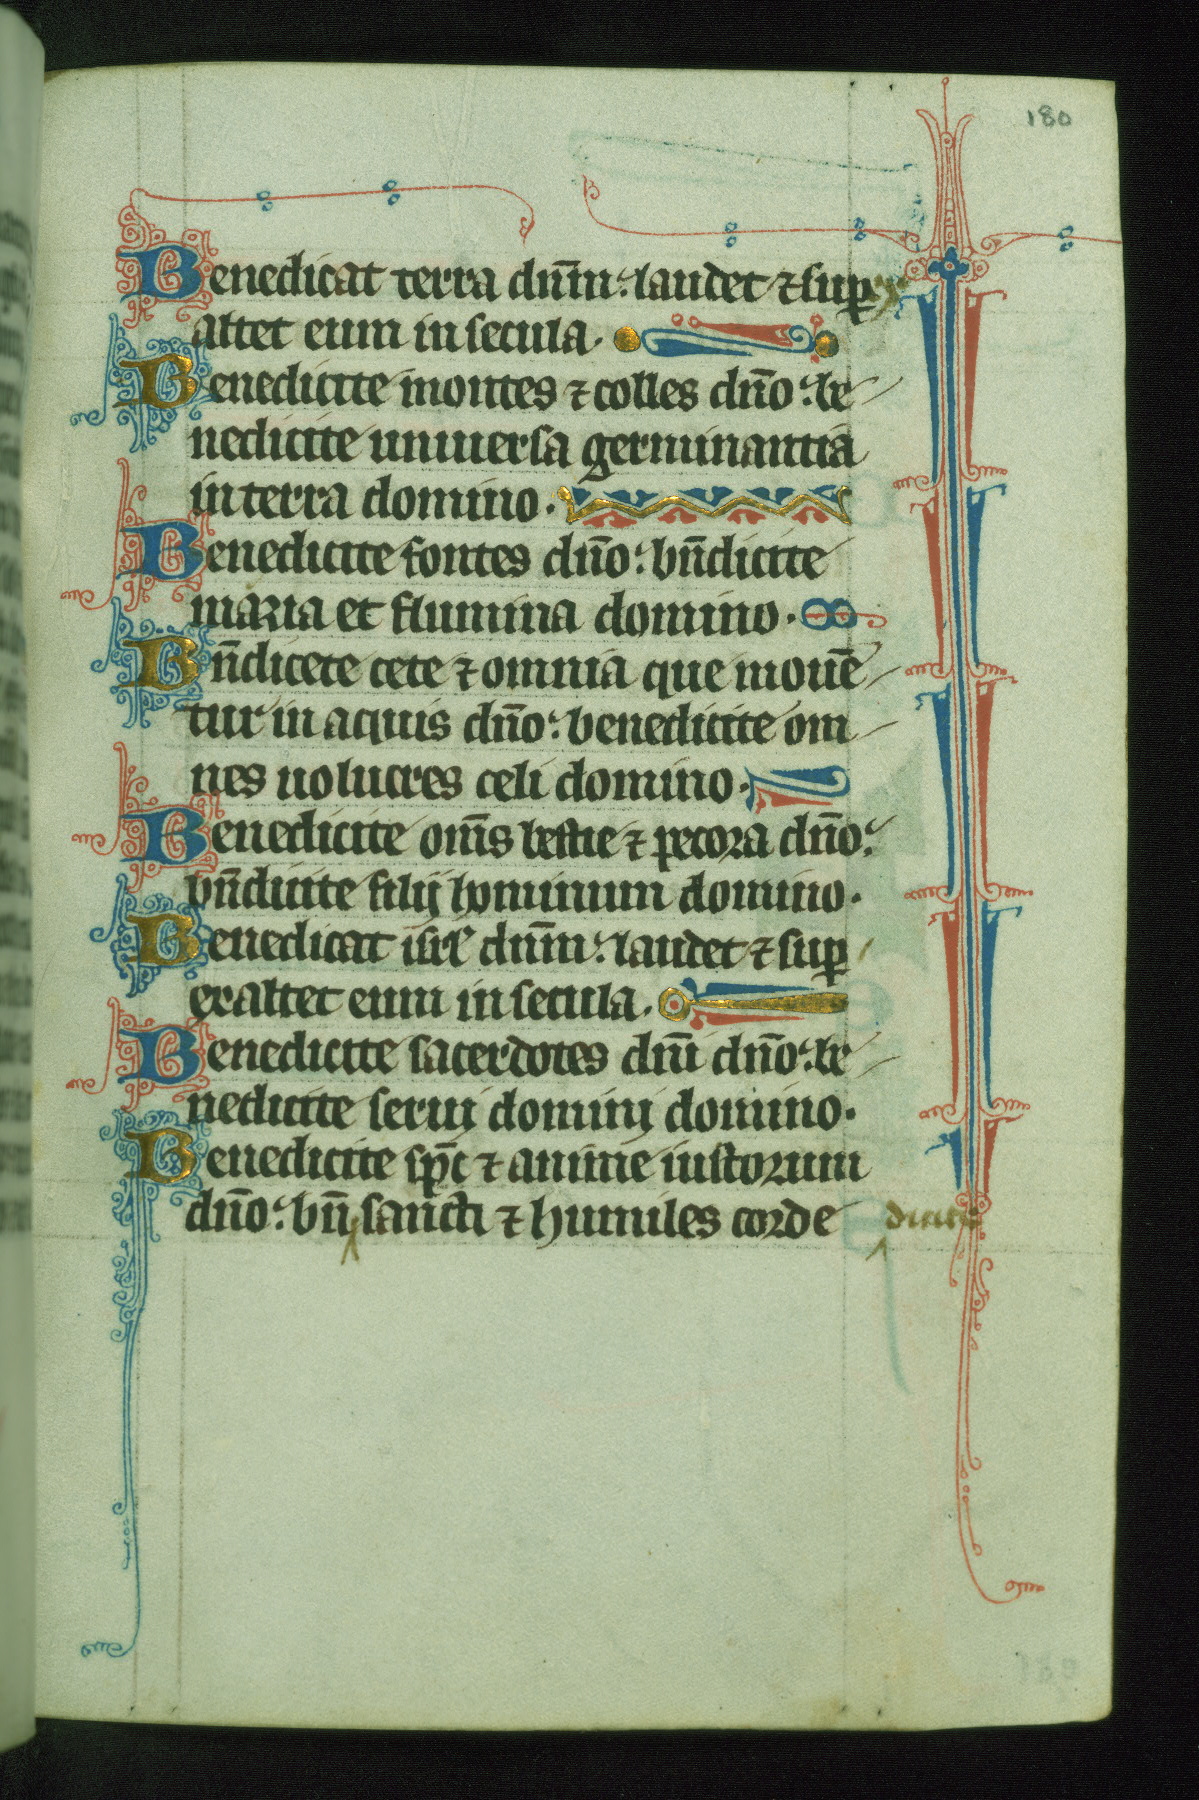 180
Benedicat terra dn̄m: laudet ⁊ suꝑ ex
altet eum in secula.
Benedicite montes ⁊ colles dn̄o: be
nedicite uniuersa germinantia
in terra domino.
Benedicite fontes dn̄o: bn̄dicite
maria et flumina domino.
Bn̄dicete cete ⁊ omnia que mouē
tur in aquis dn̄o: benedicite om
nes uolucres celi domino.
Benedicite om̄s bestie ⁊ pecora dn̄o:
bn̄dicite filij hominum domino.
Benedicat isrl̄ dn̄m: laudet ⁊ suꝑ
exaltet eum in secula.
Benedicite sacerdotes dn̄i dn̄o: be
nedicite serui dominj domino.
Benedicite sp̄c ⁊ anime iustorum
dn̄o: bn̄ sancti ⁊ humiles corde dicite